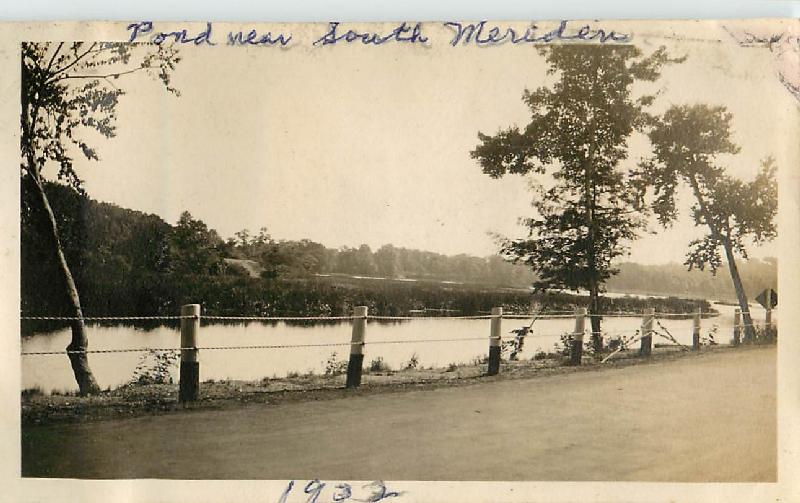 Pond near South Meriden
1932